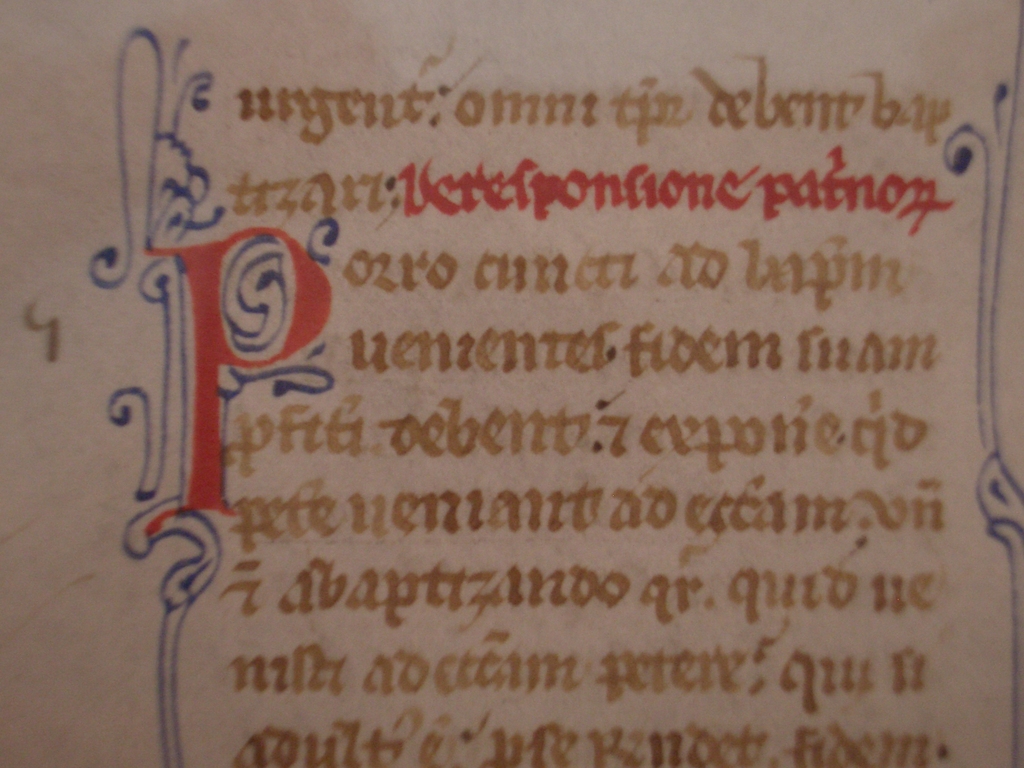 urgent᷑: omni tp̄r debent bap
tizari: De responsione pat̾noꝝ
Porro cuncti ad bapm̄
uenientes fidem suam
ꝓfit̾i debent: ⁊ expone̾. qⁱd
pete̾ ueniant ad ecc̄am. vn̄
⁊̄ a baptizando qr̾. quid ue
nisti ad ecc̄am petere? qui si
adult᷑ ē: ipse respondet. fidem.